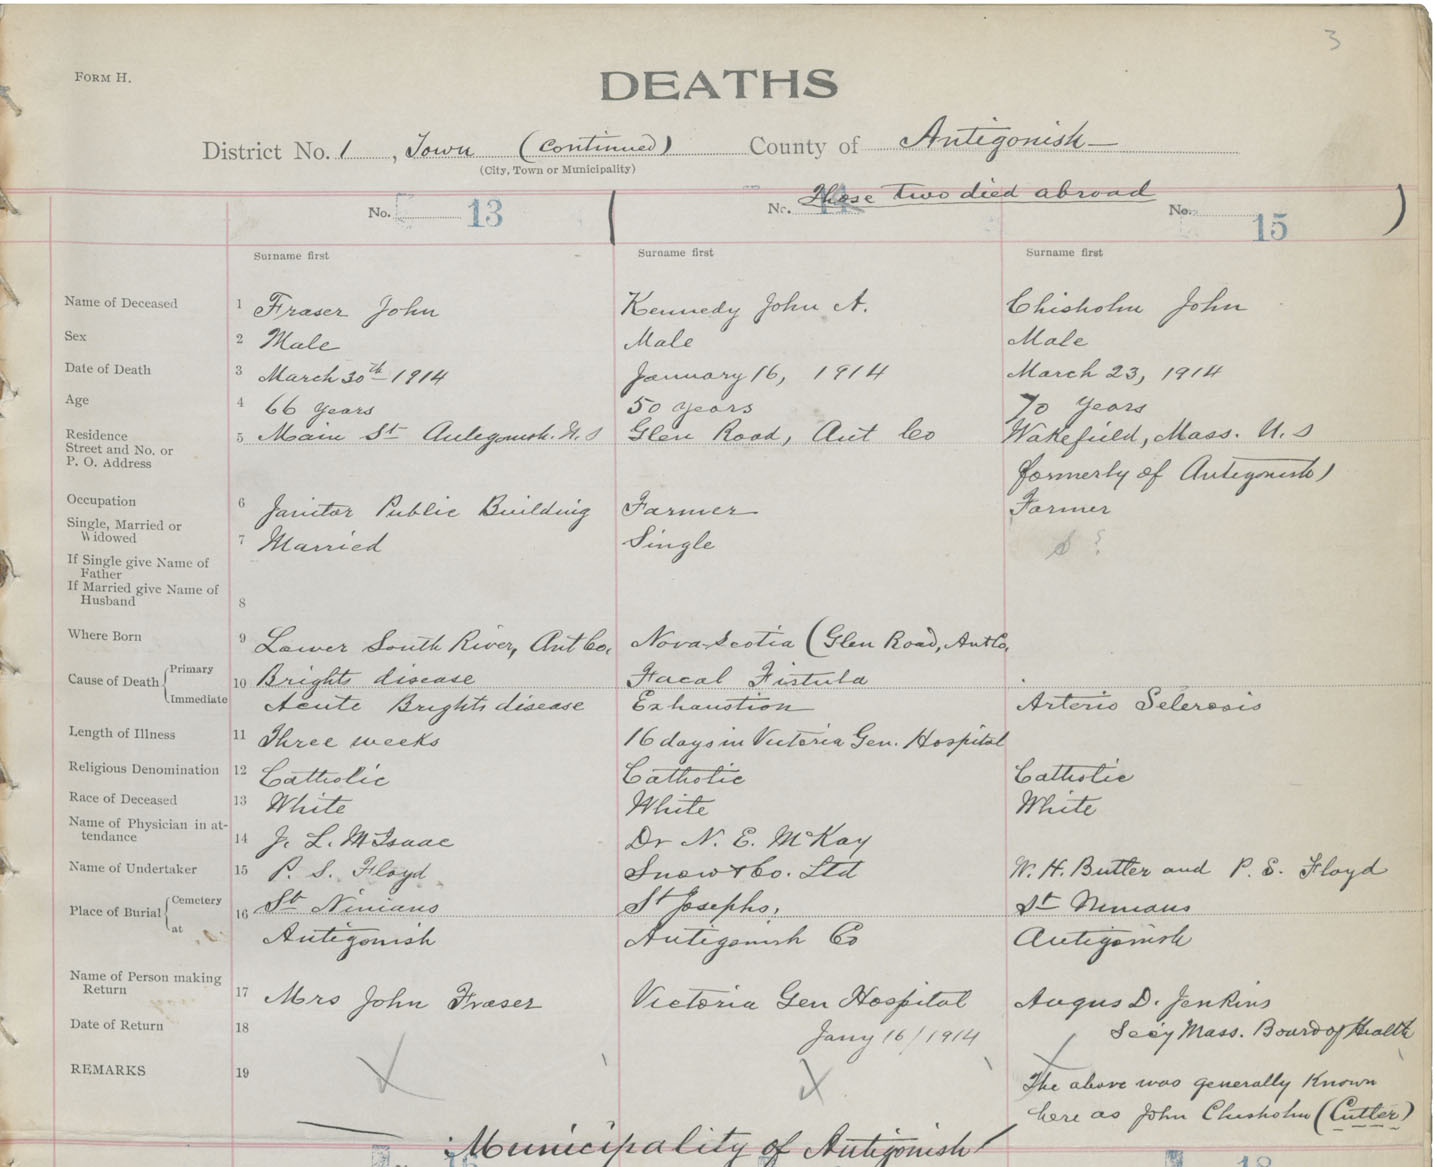 3
FORM H.
DEATHS
District No. 1, Town (Continued) County of Antigonish
(City, Town or Municipality)
Those two died abroad
No. 13 No. 14 No. 15
Surname first Surname first Surname first
Name of Deceased 1 Fraser John Kennedy John A. Chisholm John
Sex 2 Male Male Male
Date of Death 3 March 30th 1914 January 16, 1914 March 23, 1914
Age 4 66 years 50 years 70 years
Residence Street and No. or P. O. Address 5 Main St Antigonish. N. S Glen Road, Ant Co Wakefield, Mass. U. S
formerly of Antigonish)
Occupation 6 Janitor Public Building Farmer Farmer
Single, Married or Widowed 7 Married Single S ?
If Single give Name of Father
If Married give Name of Husband 8
Where Born 9 Lower South River, Ant Co, Nova Scotia (Glen Road, Ant Co,
Cause of Death Primary 10 Brights disease Facal Fistula
Immediate Acute Brights disease Exhaustion Arterio Selerosis
Length of Illness 11 Three weeks 16 days in Victoria Gen. Hospital
Religious Denomination 12 Catholic Catholic Catholic
Race of Deceased 13 White White White
Name of Physician in attendance 14 J. L. McIsaac Dr N. E. McKay
Name of Undertaker 15 P. S. Floyd Snow & Co. Ltd W. H. Butler and P. S. Floyd
Place of Burial Cemetery 16 St Ninians St Josephs, St Ninians
at Antigonish Antigonish Co Antigonish
Name of Person making Return 17 Mrs John Fraser Victoria Gen Hospital Angus D. Jenkins
Date of Return 18 Jany 16/1914 Secy Mass. Board of Health
REMARKS 19 X X X The above was generally known
here as John Chisholm (Cutler)
Municipality of Antigonish
16 18